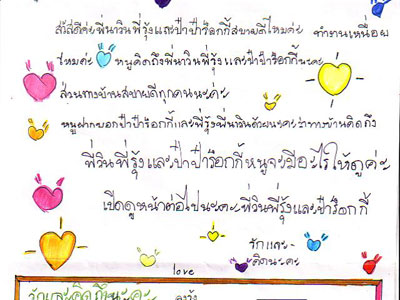 สวัสดีค่ะพี่นาวินพี่รุ้งและป๋าป๋าร๊อกกี้สบายดีไหมค่ะ ทำงานเหนื่อย
ไหมค่ะ หนูคิดถึงพี่นาวินพี่รุ้ง และป๋าป๋าร๊อกกี้นะคะ
ส่วนทางบ้านสบายดีทุกคนนะค่ะ
หนูฝากบอกป๋าป๋าร๊อกกี้และพี่รุ้งพี่นาวินด้วยนะคะว่าทางบ้านคิดถึง
พี่วินพี่รุ้งและป๋าป๋าร๊อกกี้หนูจะมีอะไรให้ดูค่ะ
เปิดดูหน้าต่อไปนะคะ พี่วินพี่รุ้งและป๋าร๊อกกี้
รักและ
คิดถึงนะคะ
love
รักและคิดถึงนะคะ